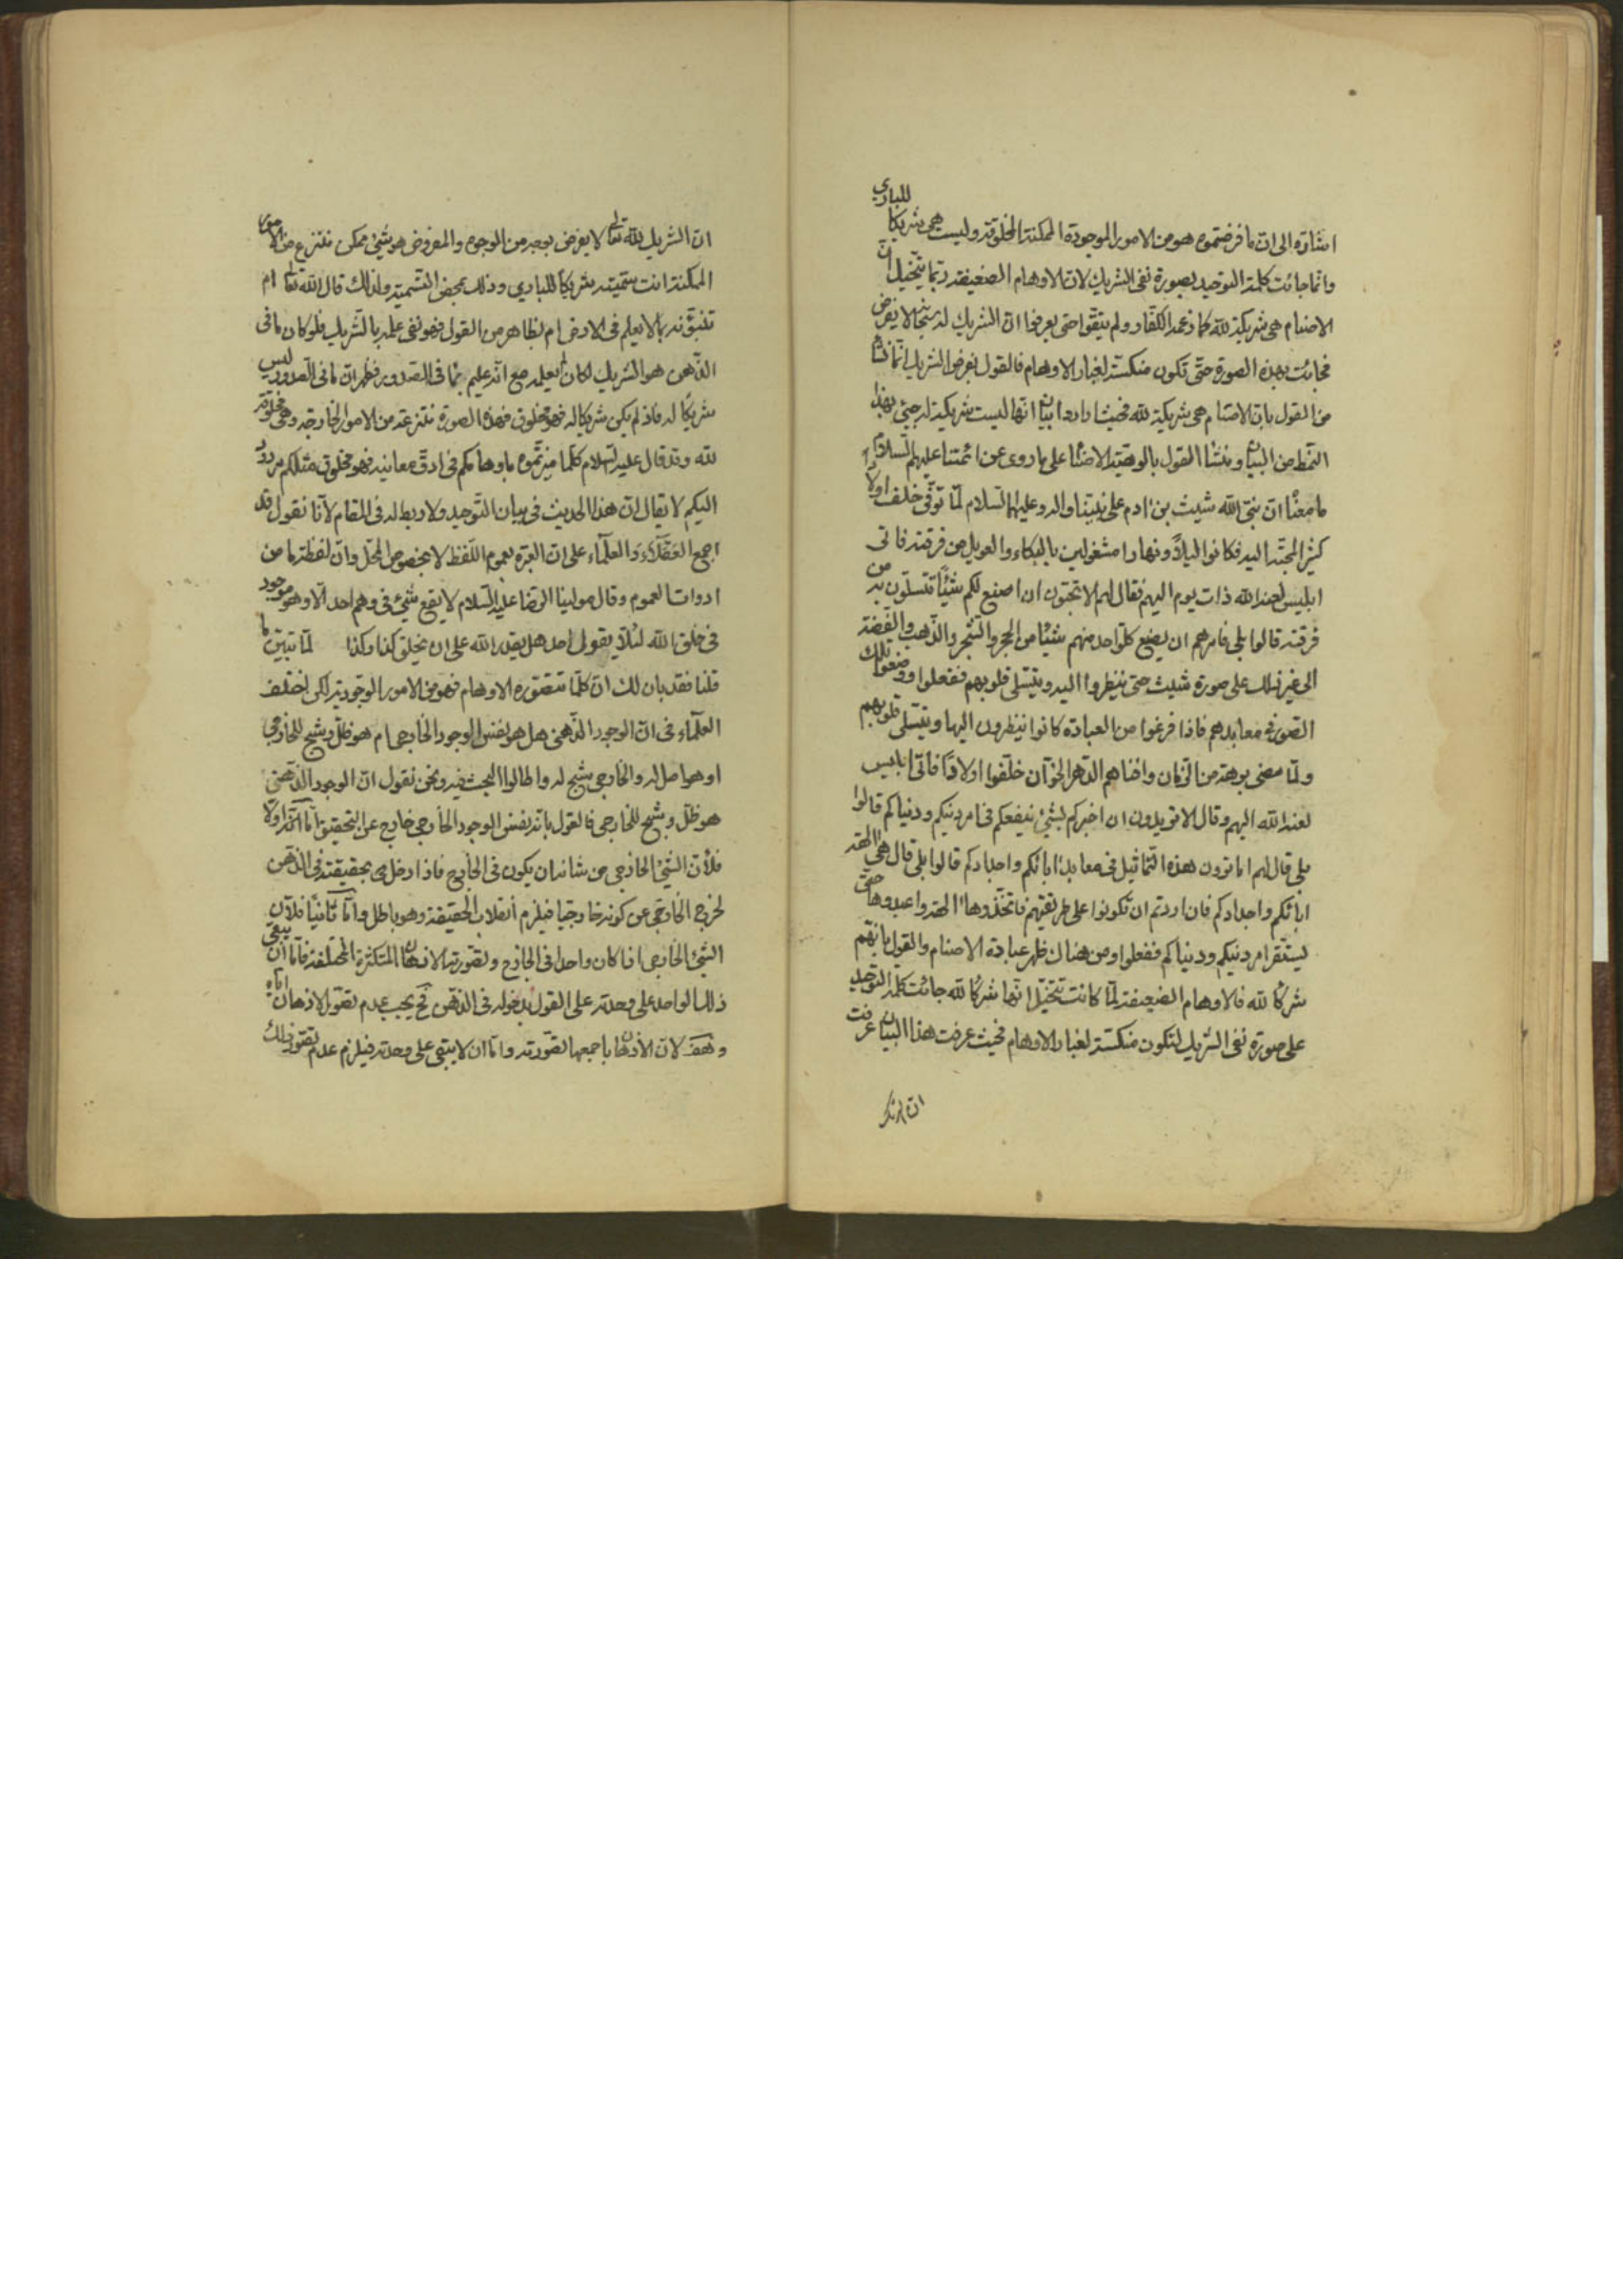 اشارة الى ان ما فرضتموه هو من الامور الموجودة الممكنة المخلوقة وليست هى شريكا للباري
وانما جائت كلمة التوحيد بصورة نفى الشريك لان الاوهام الضعيفة ربما يتخيل ان
الاصنام هى شريكة لله كما زعمه الكفار ولم يتقوا حتى يعرفوا ان الشريك له سبحانه لا يفرض
فجائت بهذه الصورة حتى تكون منكسة لغبار الاوهام فالقول بفرض الشريك انما نشأ
من القول بان الاصنام هى شريكة لله فحيث ارادوا بيان انها ليست شريكية له جيئ بهذا
النمط من البيان ومنشا القول بالوهية الاصنام على ما روى عن ائمتنا عليهم السلام
ما معناه ان نبى الله شيث بن ادم على نبينا واله وعليهما السلام لما توفى خلف اولادا
كثير المحبة اليه فكانوا ليلاً ونهارا مشغولين بالبكاء والعويل من فرقته فاتى
ابليس لعنه الله ذات يوم اليهم فقال لهم الا تحبون ان اصنع لكم شيئاً تتسلون به من
فرقته قالوا بلى فامرهم ان يصنع كل واحد منهم شيئا من الحجر والشجر والذهب والفضة
الى غير ذلك على صورة شيث حتى ينظروا اليه ويتسلى قلوبهم ففعلوا ووضعوا تلك
الصور فى معابدهم فاذا فرغوا من العبادة كانوا ينظرون اليها ويتسلى قلوبهم
ولما مضى برهة من الزمان وافناهم الدهر الخوان خلفوا اولادا فاتى ابليس
لعنه الله اليهم وقال الا تريدون ان اخبركم بشيئ ينفعكم فى امر دينكم ودنياكم قالوا
بلى قال لهم اما ترون هذه التماثيل فى معابد ابائكم واجدادكم قالوا بلى قال هى الهة
ابائكم واجدادكم فان اردتم ان تكونوا على طريقتهم فاتخذوها الهة واعبدوها حتى
يستقر امر دينكم ودنياكم ففعلوا ومن هناك ظهر عبادة الاصنام والقول بانهم
شركاء لله فالاوهام الضعيفة لما كانت تتخيل انها شركاء لله جائت كلمة التوحيد
على صورة نفى الشريك لتكون منكسة لغبار الاوهام فحيث عرفت هذا البيان عرفت
ان الشريك لله تعالى لا يفرض بوجه من الوجوه والمفروض هو شيئ ممكن منتزع من الامور
الممكنة انت سميته شريكا للباري وذلك بمحض التسمية ولذلك قال الله تعالى ام
تنبؤنه بما لا يعلم فى الارض ام بظاهر من القول فهو نفى علمه بالشريك فلو كان ما فى
الذهن هو الشريك لكان يعلمه مع انه عليم بما فى الصدور فظهر ان ما فى الصدور ليس
شريكا له فاذ لم يكن شريكا له فهو مخلوق فهذه الصورة منتزعة من الامور الخارجة وهى مخلوقة
لله وقد قال عليه السلام كلما ميزتموه باوهامكم فى ادق معانيه فهو مخلوق مثلكم مردود
اليكم لا يقال ان هذا الحديث فى بيان التوحيد ولا ربط له فى المقام لانا نقول قد
اجمع العقلاء والعلماء على ان العبرة بعموم اللفظ لا بخصوص المحل وان لفظة ما من
ادوات العموم وقال مولينا الرضا عليه السلام لا يقع شيئ فى وهم احد الا وهو موجود
فى خلق الله لئلا يقول احد هل يقدر الله على ان يخلق كذا وكذا لما تبين ما
قلنا فقد بان لك ان كلما تتصوره الاوهام فهو من الامور الوجودية لكن اختلف
العلماء فى ان الوجود الذهنى هل هو نفس الوجود الخارجى ام هو ظل وشبح للخارجى
او هو اصل له والخارجى شبح له واطالوا البحث فيه ونحن نقول ان الوجود الذهنى
هو ظل وشبح للخارجى فالقول بانه نفس الوجود الخارجى خارج عن التحقيق اما اولا
فلأن الشيئ الخارجى من شانه ان يكون فى الخارج فاذا دخل بحقيقته فى الذهن
لخرج الخارجى عن كونه خارجيا فيلزم انقلاب الحقيقة وهو باطل واما ثانيا فلان
الشيئ الخارجى اذا كان واحدا فى الخارج وتصورته الاذهان المتكثرة المختلفة فاما ان يبقى
ذلك الواحد على وحدته على القول بدخوله فى الذهن فح يجب عدم تصور الاذهان اياه
وهف لان الاذهان باجمعها تصورته واما ان لا يبقى على وحدته فيلزم عدم تصور ذلك